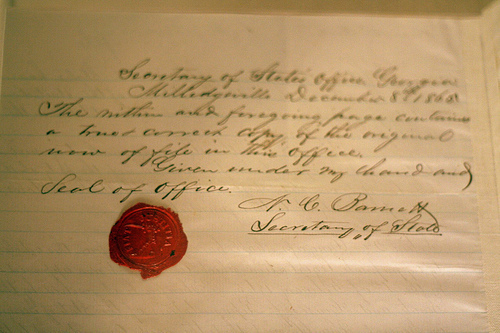 Secretary of State's Office, Georgia
Milledgeville December 8th 1865
The within and foregoing page contains
a true & correct copy of the original
now of file in this office.
Given under my hand and
Seal of Office.
N. C. Barnett
Secretary of State